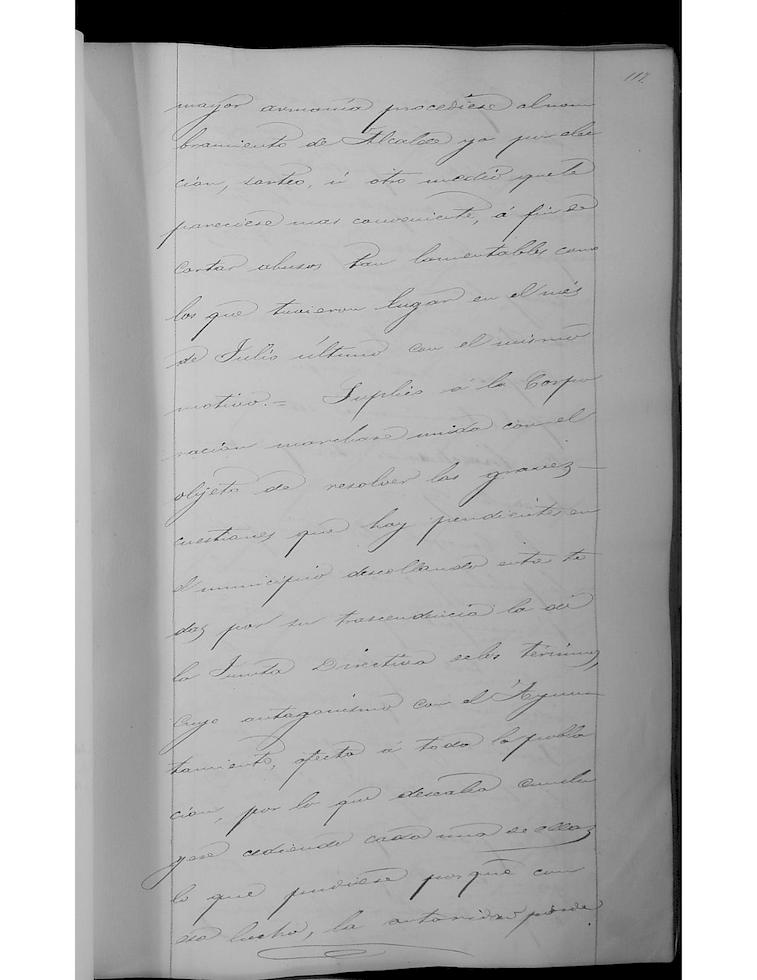 112
mayor armonía procediese al nom
bramiento de Alcalde ya por elec
ción, sorteo, ú otro medio que le
pareciese mas conveniente, á fin de
cortar abusos tan lamentables como
los que tuvieron lugar en el més
de Julio último con el mismo
motivo.= Suplico á la Corpo
ración marchase unida con el
objeto de resolver las graves
cuestiones que hay pendientes en
el municipio descollando entre to
das por su trascendencia la de
la Junta Directiva de los términos,
cuyo antagonismo con el Ayun
tamiento, afecta á toda la pobla
ción, por lo que deseaba concilia
gase cediendo cada una de ellas
lo que pudiese porque con
esa lucha, la autoridad pierde